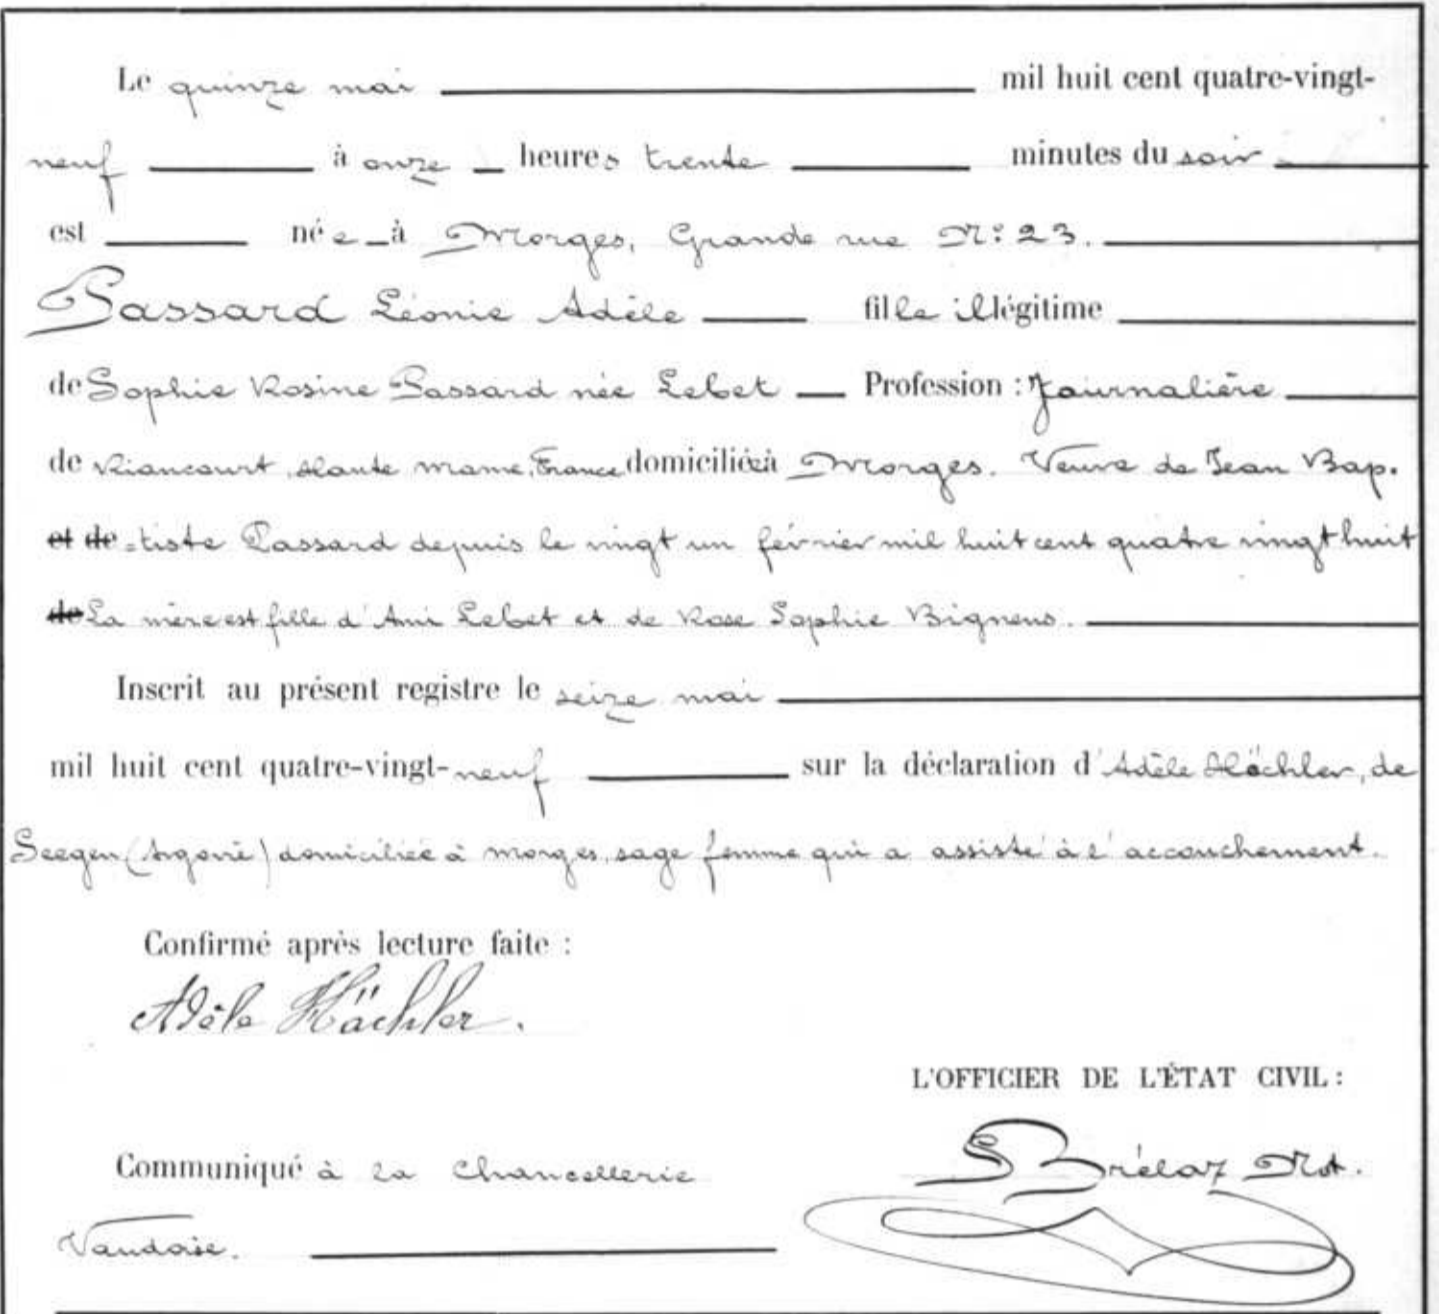 Le quinze mai mil huit cent quatre-vingt-
neuf à onze heures trente minutes du soir
est née à Morges, Grande rue No: 23.
Passard Léonie Adèle fille illégitime
de Sophie Rosine Passard née Lebet Profession : Journalière
de Riancourt, Haute Marne, France domiciliée à Morges. Veuve de Jean Bap.
et de -tiste Passard depuis le vingt un février mil huit cent quatre vingt huit
de La mère est fille d'Ami Lebet et de Rose Sophie Bignens.
Inscrit au présent registre le seize mai
mil huit cent quatre-vingt-neuf sur la déclaration d'Adèle Hächler, de
Seegen (Argovie) domiciliée à Morges, sage femme qui a assisté à l'accouchement.
Confirmé après lecture faite :
Adèle Hächler.
L'OFFICIER DE L'ÉTAT CIVIL :
Communiqué à la Chancellerie
S Brélaz Not.
Vaudoise.